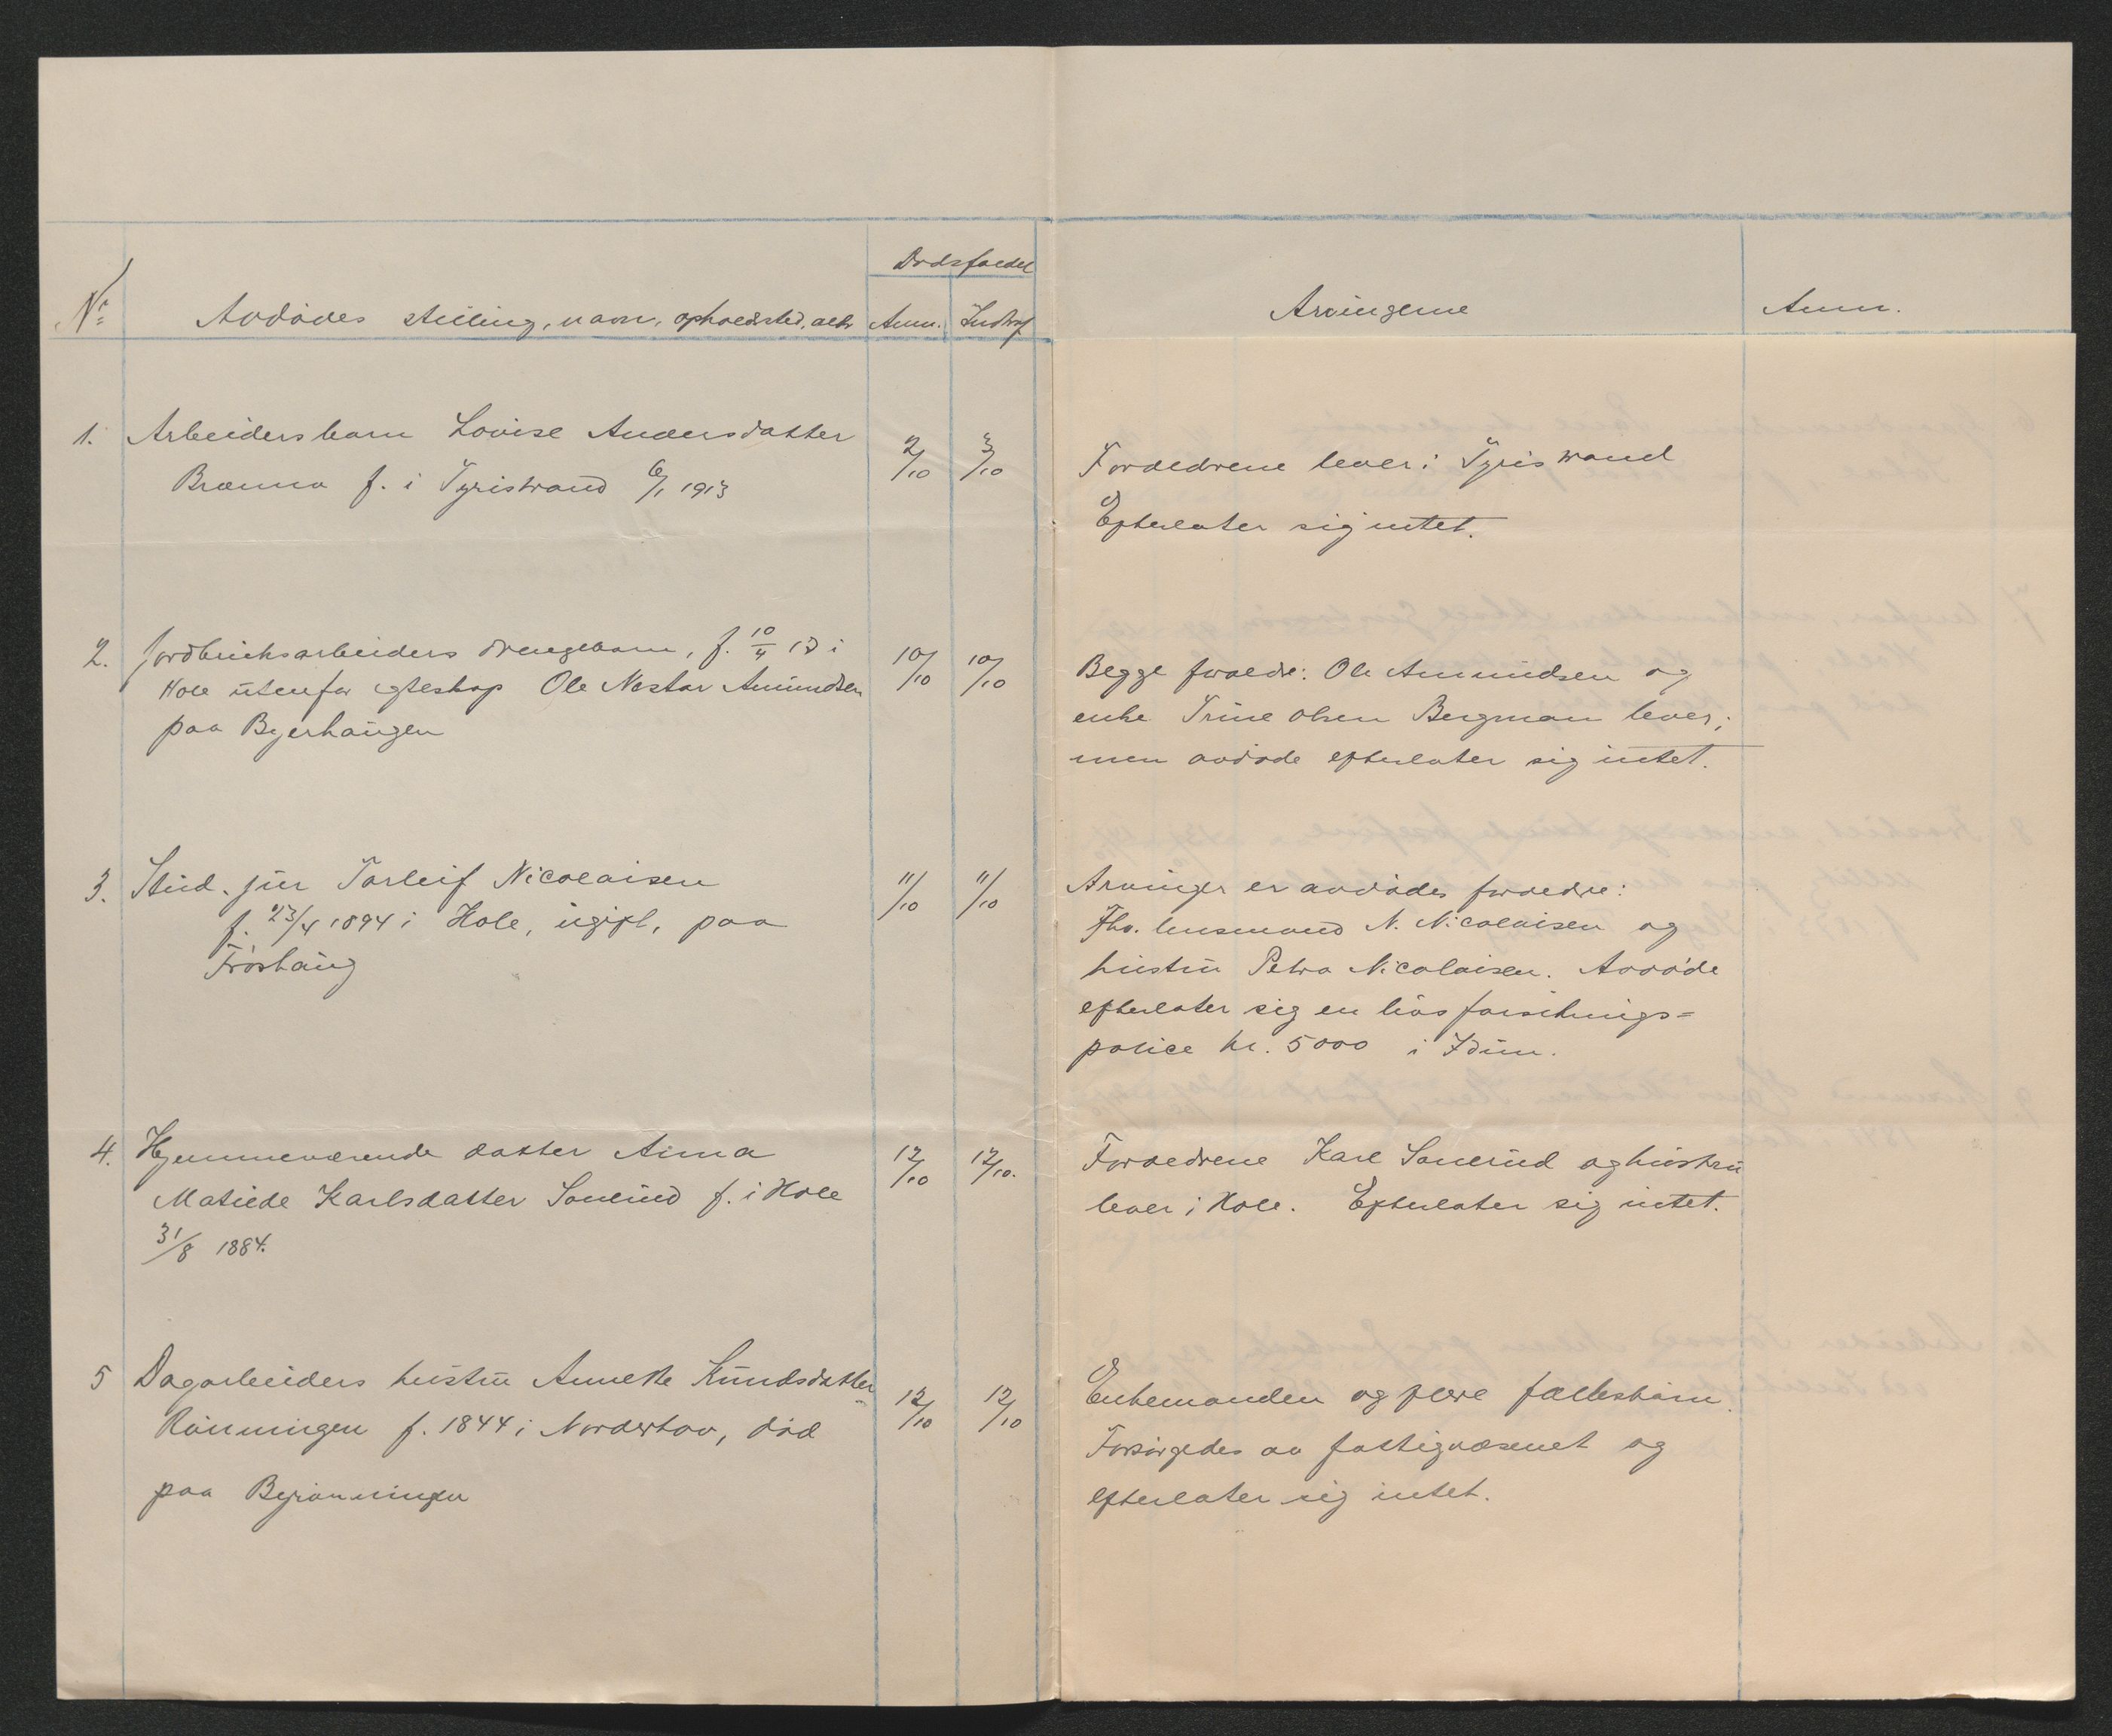 Dødsfaldet
No Avdødes stilling, navn, opholdssted, alder Anm. Indtraf Arvingerne Anm.
1. Arbeidersbarn Lovise Andersdatter 2/10 2/10
Brænna f. i Tyristrand 6/1 1913
Forældrene lever i Tyristrand
Efterlater sig intet.
2. Jordbruksarbeiders drengebarn, f. 10/4 13 i 10/10 10/10
Hole utenfor egteskap Ole Nestor Amundsen
paa Byerhaugen
Begge forældre: Ole Amundsen og
enke Trine Olsen Bergman lever;
men avdøde efterlater sig intet.
3. Stud. jur Torleif Nicolaisen 11/10 11/10
f. 23/4 1894 i Hole, ugift, paa
Frøshaug
Arvinger er avdødes forældre:
Fhv. lensmand N. Nicolaisen og
hustru Petra Nicolaisen. Avdøde
efterlater sig en livsforsikrings-
police kr. 5000 i Idun.
4. Hjemmeværende datter Anna 12/10 12/10.
Matilde Karlsdatter Sonerud f. i Hole
31/8 1884.
Forældrene Karl Sonerud og hustru
lever i Hole. Efterlater sig intet.
5 Dagarbeiders hustru Annette Knudsdatter 12/10 12/10
Rønningen f. 1844 i Norderhov, død
paa Byrønningen
Enkemanden og flere fællesbarn.
Forsørgedes av fattigvæsenet og
efterlater sig intet.